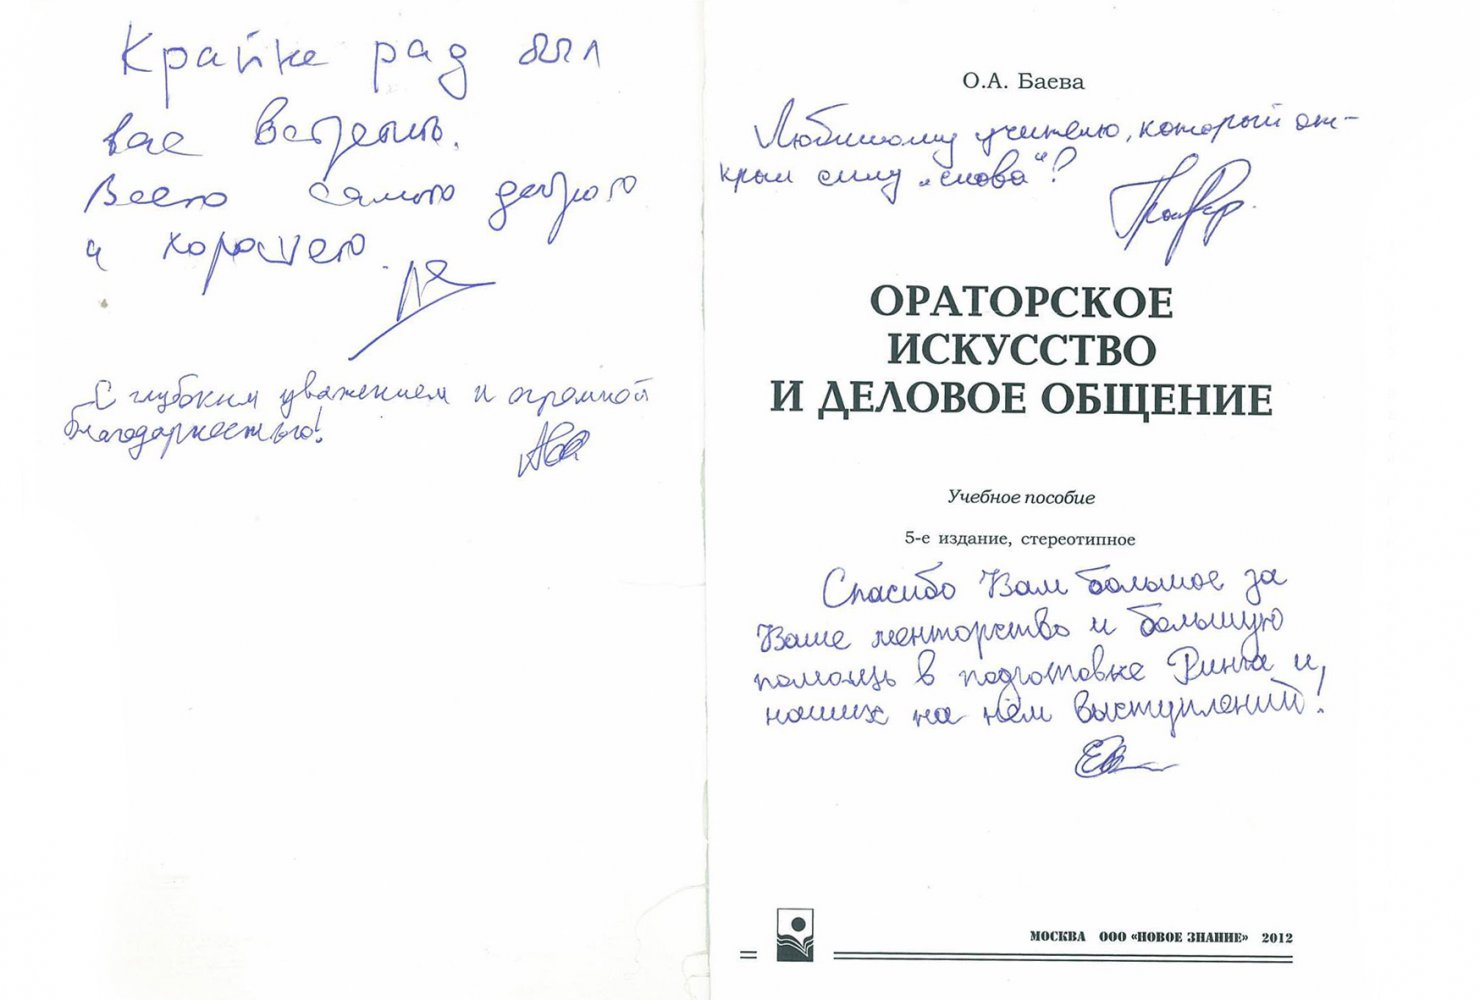 Крайне рад был
вас встретить.
Всего самого доброго
и хорошего.
С глубоким уважением и огромной
благодарностью!
О.А. Баева
Любимому учителю, который от-
крыл силу „слова“!
ОРАТОРСКОЕ
ИСКУССТВО
И ДЕЛОВОЕ ОБЩЕНИЕ
Учебное пособие
5-е издание, стереотипное
Спасибо Вам большое за
Ваше менторство и большую
помощь в подготовке Ринга и
наших на нём выступлений!
МОСКВА ООО «НОВОЕ ЗНАНИЕ» 2012